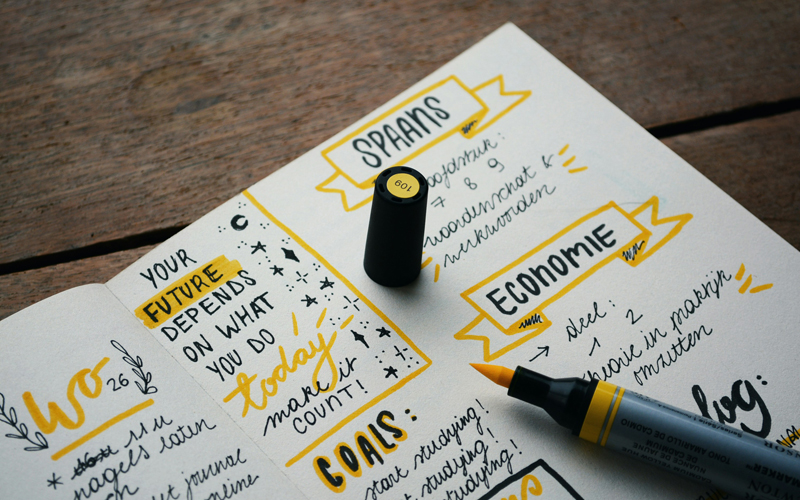 Wo
26
11u
nagels laten
YOUR
FUTURE
DEPENDS
ON WHAT
YOU DO
today
make it
COUNT!
GOALS:
start studying!
start studying!
studying!
SPAANS
hoofdstuk:
7 8 9
woordenschat &
werkwoorden
ECONOMIE
→ deel:
1 2
theorie in praktijk
omzetten
109
TONO AMARILLO DE CADMIO